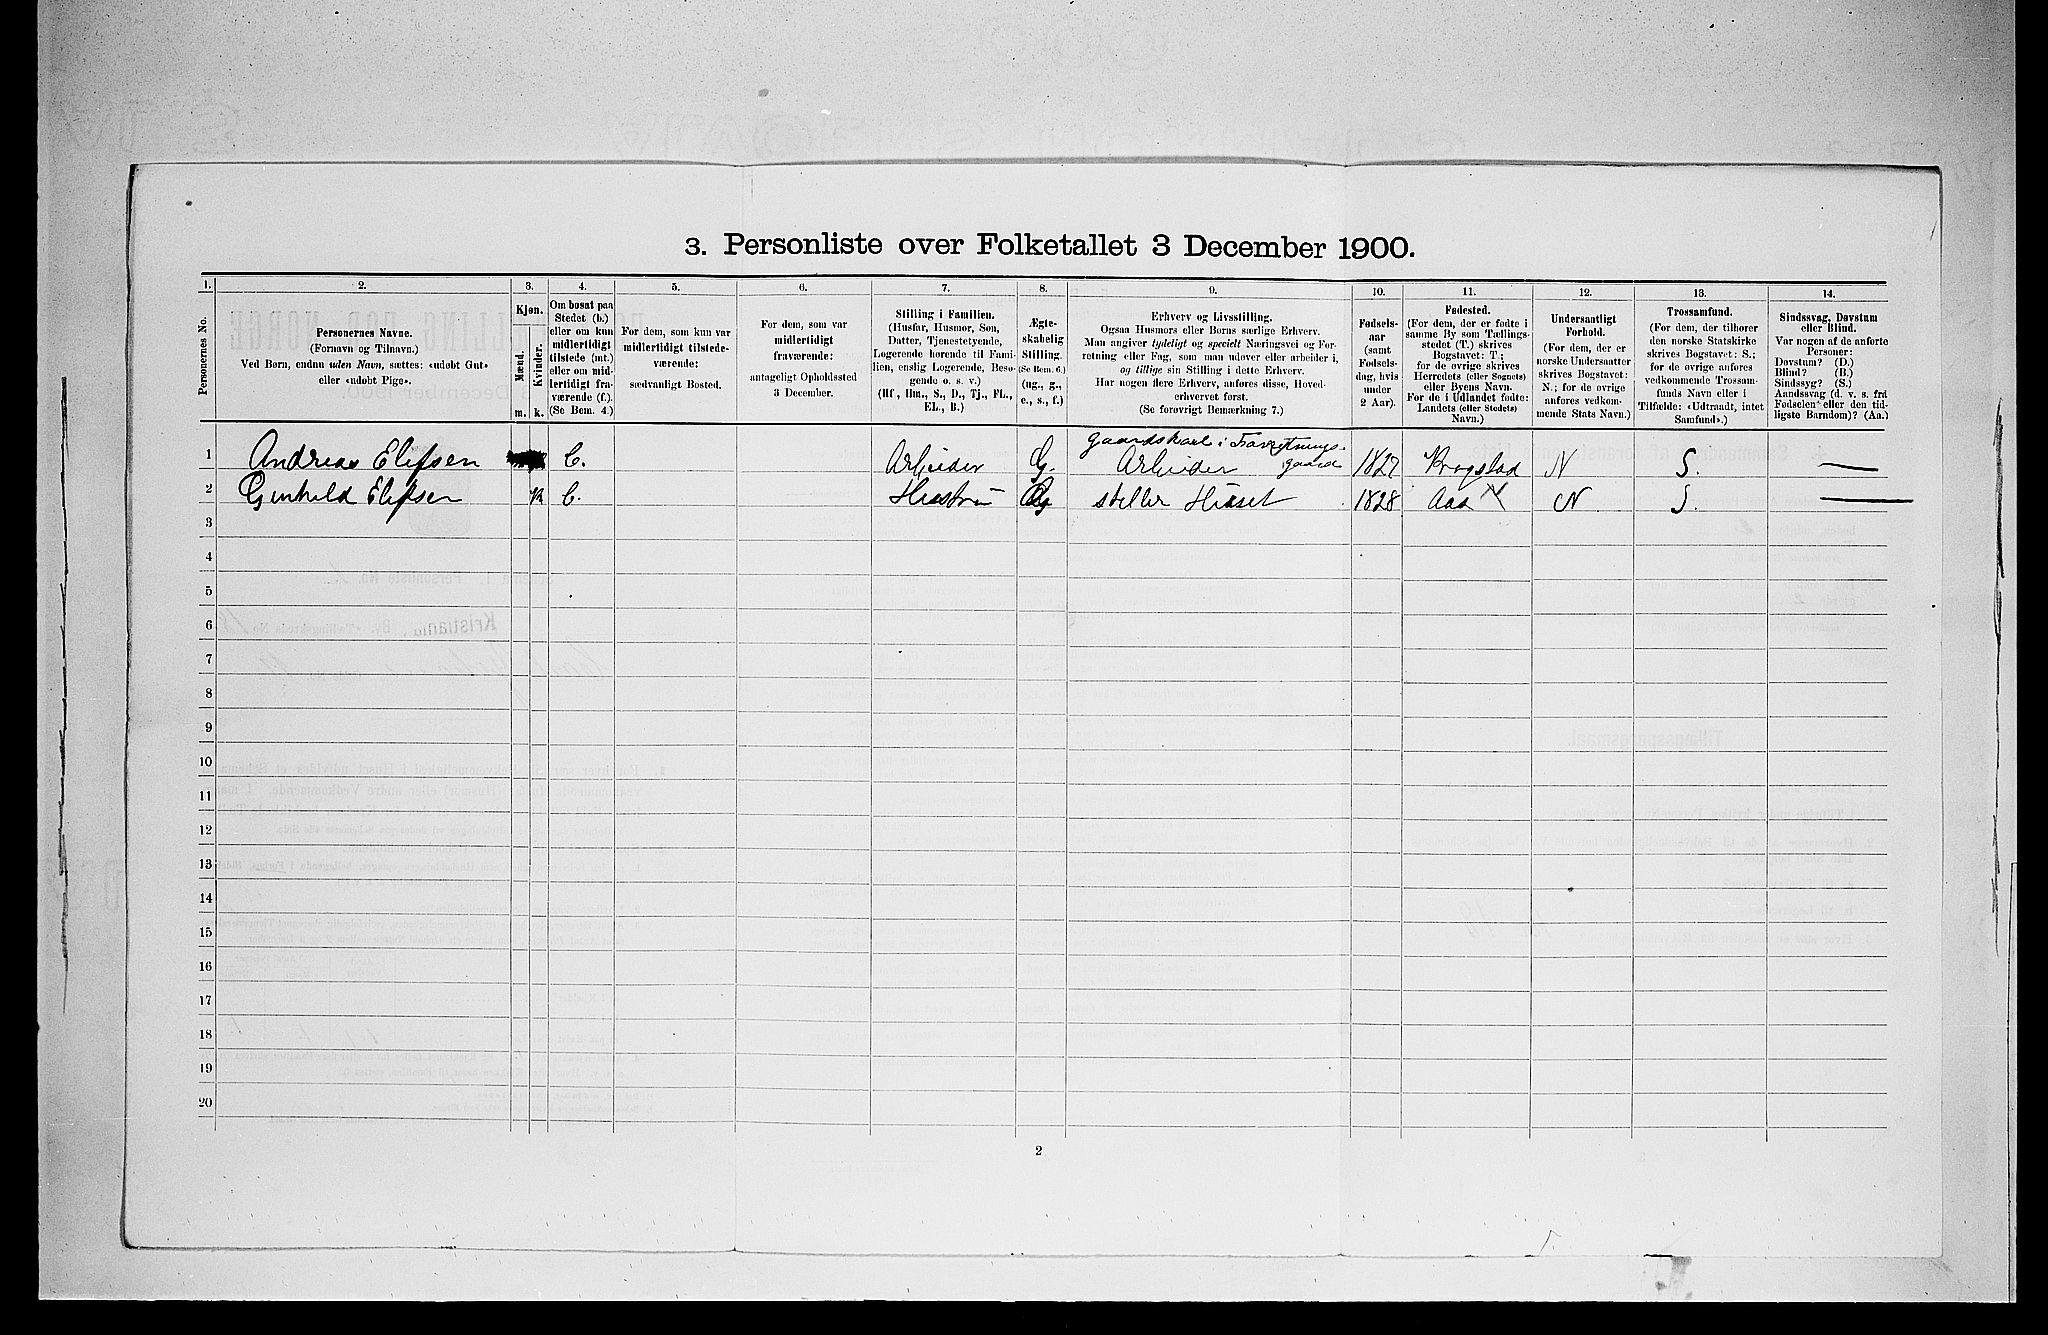 3. Personliste over Folketallet 3 December 1900.
1.
Personernes No.
2.
Personernes Navne.
(Fornavn og Tilnavn.)
Ved Børn, endnu uden Navn, sættes: «udøbt Gut»
eller «udøbt Pige».
3.
Kjøn.
Mænd.
Kvinder.
m. k.
4.
Om bosat paa
Stedet (b.)
eller om kun
midlertidigt
tilstede (mt.)
eller om mid-
lertidigt fra-
værende (f.).
(Se Bem. 4.)
5.
For dem, som kun var
midlertidigt tilstede-
værende:
sædvanligt Bosted.
6.
For dem, som var
midlertidigt
fraværende:
antageligt Opholdssted
3 December.
7.
Stilling i Familien.
(Husfar, Husmor, Søn,
Datter, Tjenestetyende,
Logerende hørende til Fami-
lien, enslig Logerende, Besø-
gende o. s. v.)
(Hf, Hm., S., D., Tj., FL.,
EL., B.)
8.
Ægte-
skabelig
Stilling.
(Se Bem. 6.)
(ug., g.,
e., s., f.)
9.
Erhverv og Livsstilling.
Ogsaa Husmors eller Børns særlige Erhverv.
Man angiver tydeligt og specielt Næringsvei og For-
retning eller Fag, som man udøver eller arbeider i,
og tillige sin Stilling i dette Erhverv.
Har nogen flere Erhverv, anføres disse, Hoved-
erhvervet først.
(Se forøvrigt Bemærkning 7.)
10.
Fødsels-
aar
(samt
Fødsels-
dag, hvis
under
2 Aar).
11.
Fødested.
(For dem, der er fødte i
samme By som Tællings-
stedet (T.) skrives
Bogstavet: T;
for de øvrige skrives
Herredets (eller Sognets)
eller Byens Navn.
For de i Udlandet fødte:
Landets (eller Stedets)
Navn.)
12.
Undersaatligt
Forhold.
(For dem, der er
norske Undersaatter
skrives Bogstavet:
N.; for de øvrige
anføres vedkom-
mende Stats Navn.)
13.
Trossamfund.
(For dem, der tilhører
den norske Statskirke
skrives Bogstavet: S.;
for de øvrige anføres
vedkommende Trossam-
funds Navn eller i
Tilfælde: «Udtraadt, intet
Samfund».)
14.
Sindssvag, Døvstum
eller Blind.
Var nogen af de anførte
Personer:
Døvstum? (D.)
Blind? (B.)
Sindssyg? (S.)
Aandssvag (d. v. s. fra
Fødselen eller den tid-
ligste Barndom)? (Aa.)
gaardskarl i Forretnings-
gaard
1 Andreas Elefsen b. Arbeider G. Arbeider 1827 Krogstad N S. —
2 Gunhild Elefsen K b. Hustru G steller Huset 1828 Aas N. S. —
3
4
5
6
7
8
9
10
11
12
13
14
15
16
17
18
19
20
2